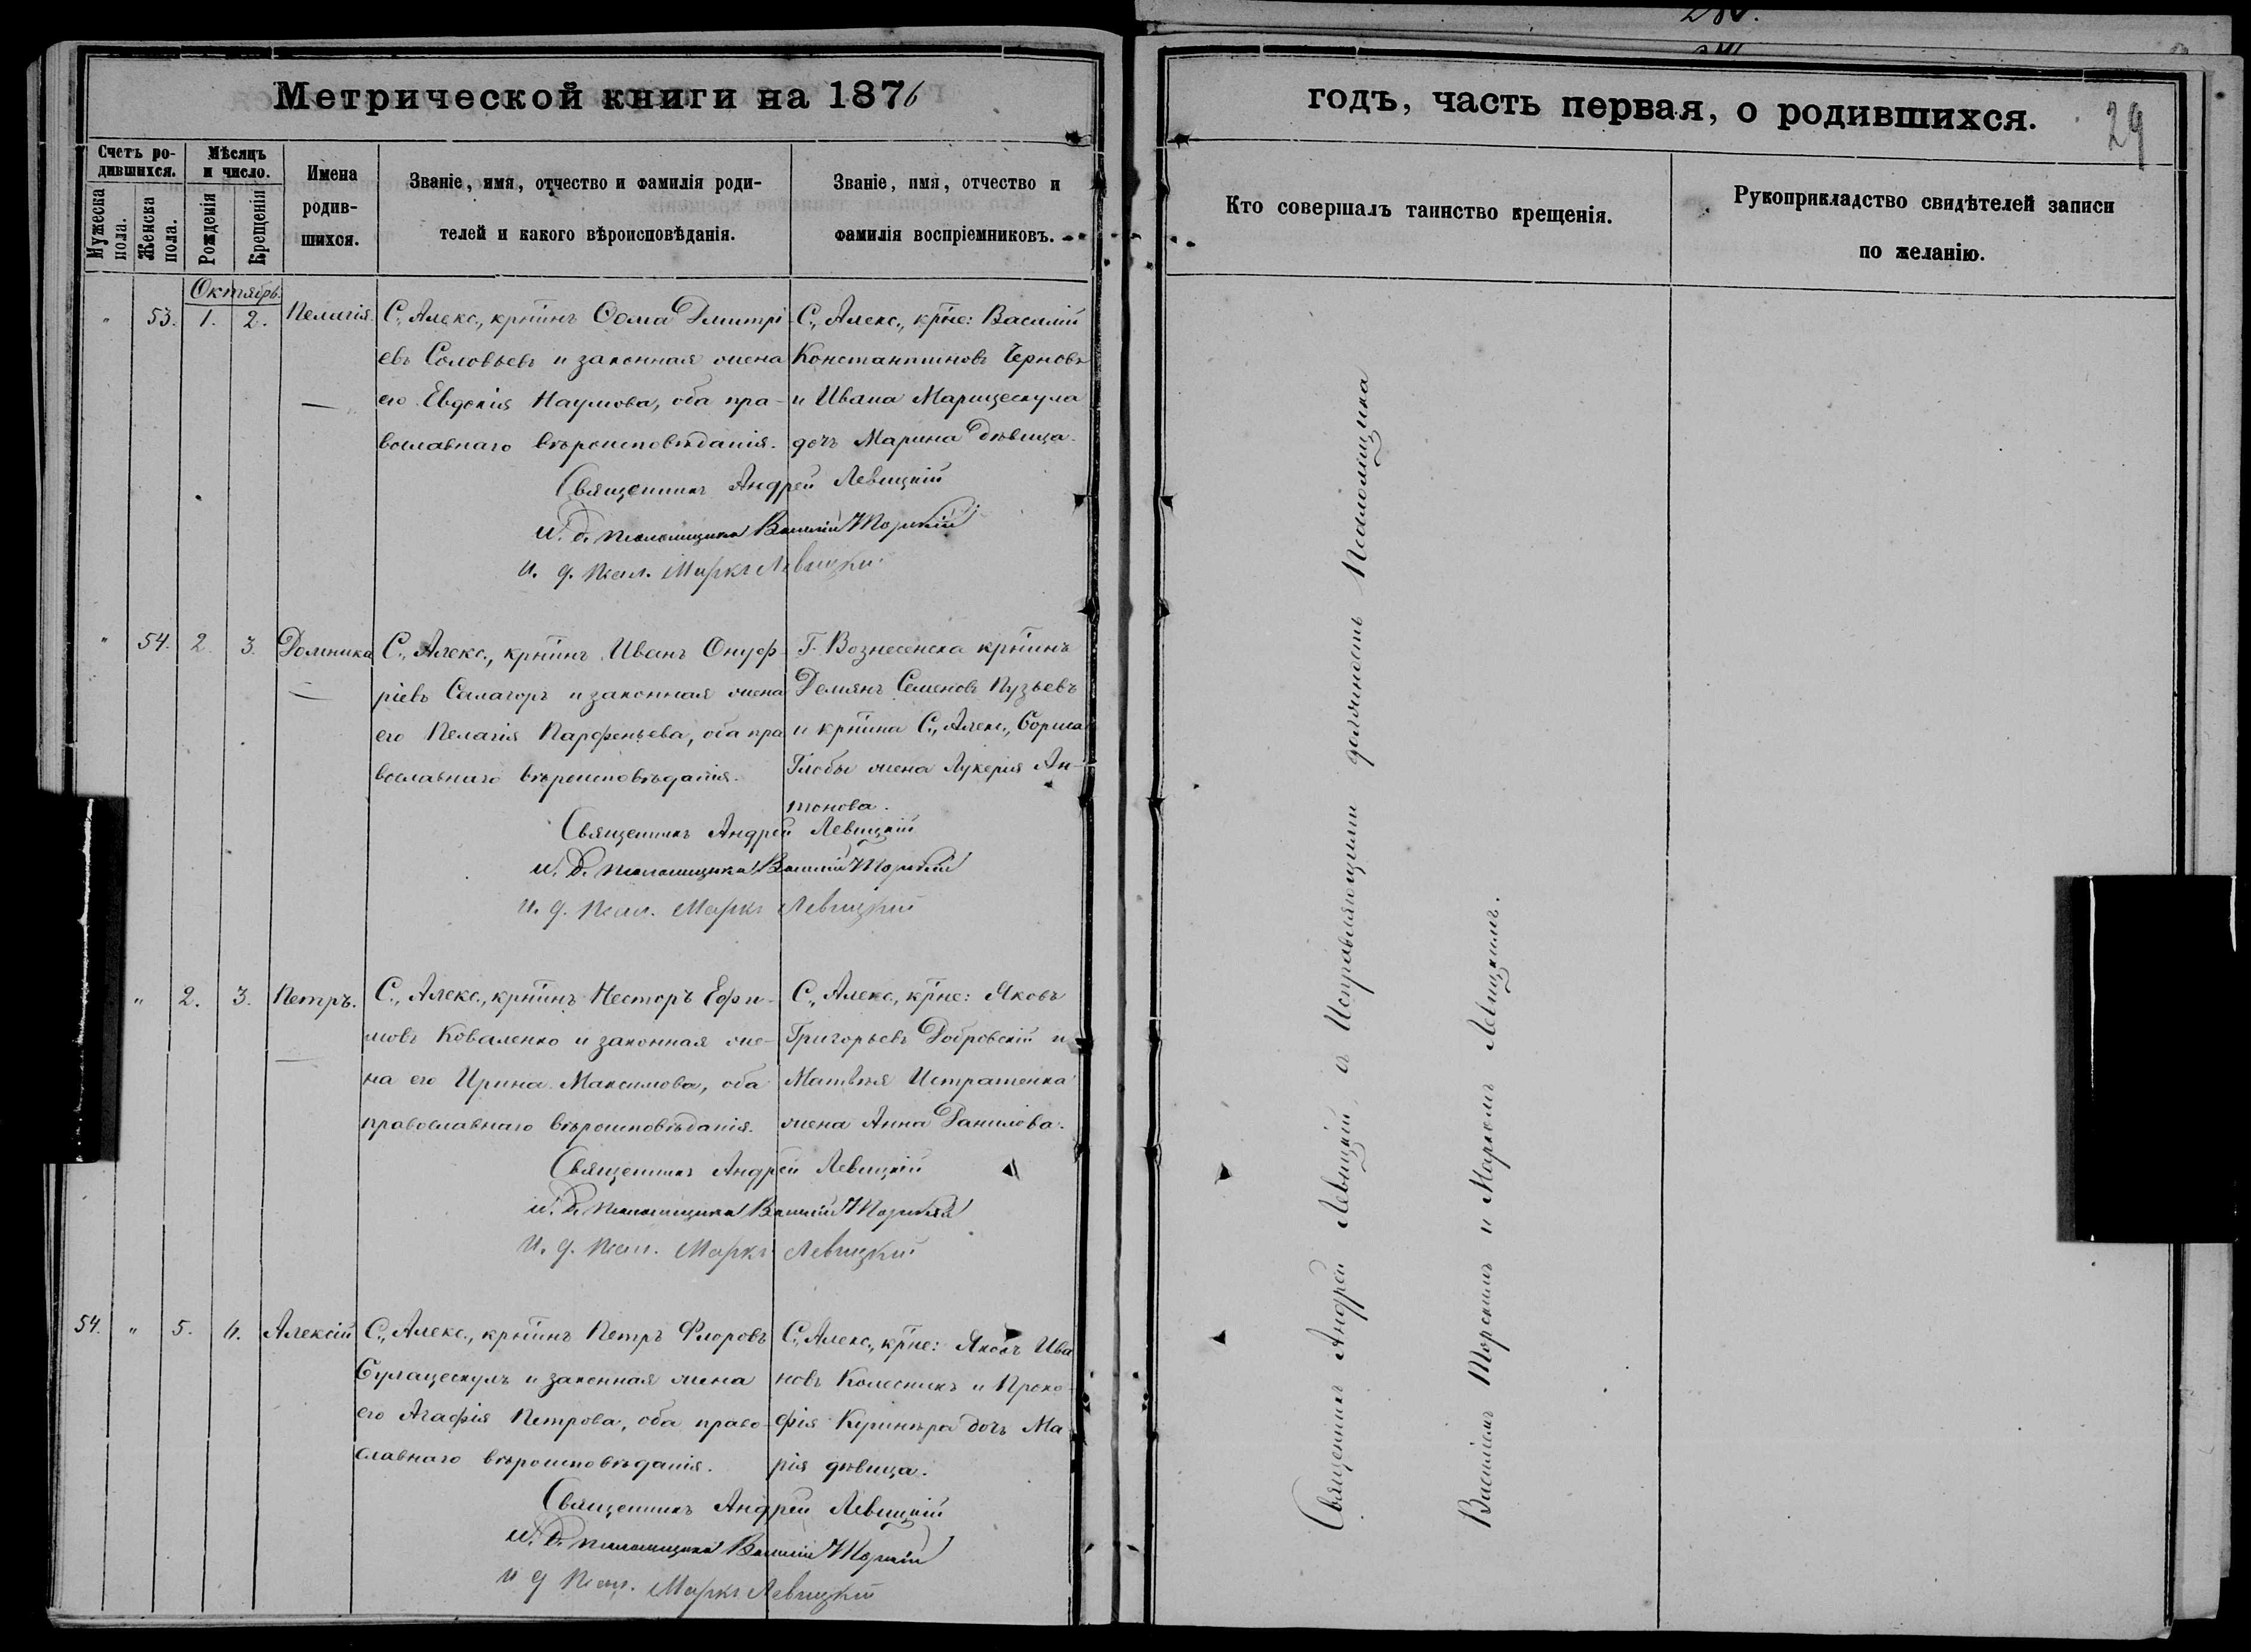 Метрической книги на 1876
Счетъ ро-
дившихся.
Мужеска
пола.
Женска
пола.
Мѣсяцъ
и число.
Рожденія
Крещенія
Имена
родив-
шихся.
Званіе, имя, отчество и фамилія роди-
телей и какого вѣроисповѣданія.
Званіе, имя, отчество и
фамилія воспріемниковъ.
Октябрь.
" 53. 1. 2. Пелагія
С., Алекс., крнинъ Ѳома Дмитрі-
евъ Соловьевъ и законная жена
его Евдокія Наумова, оба пра-
вославнаго вѣроисповѣданія.
С., Алекс., крне: Василій
Константиновъ Черновъ
и Ивана Марицескула
дочь Марина дѣвица.
Священникъ Андрей Левицкій
и. д. псаломщика Василій Торскій
и. д. псал. Маркъ Левицкій
" 54. 2. 3. Домника
С., Алекс., крнинъ Иванъ Онуф-
ріевъ Салагоръ и законная жена
его Пелагія Парфеньева, оба пра
вославнаго вѣроисповѣданія.
Г. Вознесенска крнинъ
Демянъ Семеновъ Пузьевъ
и крнина С., Алекс., Бориса
Глобы жена Лукерія Ан-
тонова.
Священникъ Андрей Левицкій
и. д. псаломщика Василій Торскій
и. д. псал. Маркъ Левицкій
" 2. 3. Петръ.
С., Алекс., крнинъ Несторъ Ефи-
мовъ Коваленко и законная же-
на его Ирина Максимова, оба
православнаго вѣроисповѣданія.
С., Алекс., крне: Яковъ
Григорьевъ Добровскій и
Матвѣя Истратенка
жена Анна Данилова.
Священникъ Андрей Левицкій
и. д. псаломщика Василій Торскій
и. д. псал. Маркъ Левицкій
54. " 5. 6. Алексій
С., Алекс., крнинъ Петръ Флоровъ
Булацескулъ и законная жена
его Агафія Петрова, оба право-
славнаго вѣроисповѣданія.
С., Алекс., крне: Яковъ Ива
новъ Колесникъ и Проко-
фія дочь Ма
рія дѣвица.
Священникъ Андрей Левицкій
и. д. псаломщика Василій Торскій
и д псал. Маркъ Левицкій
годъ, часть первая, о родившихся.
29
Кто совершалъ таинство крещенія.
Рукоприкладство свидѣтелей записи
по желанію.
Священникъ Андрей Левицкій съ Исправляющими должность Псаломщика
Василіемъ Торскимъ и Маркомъ Левицкимъ.